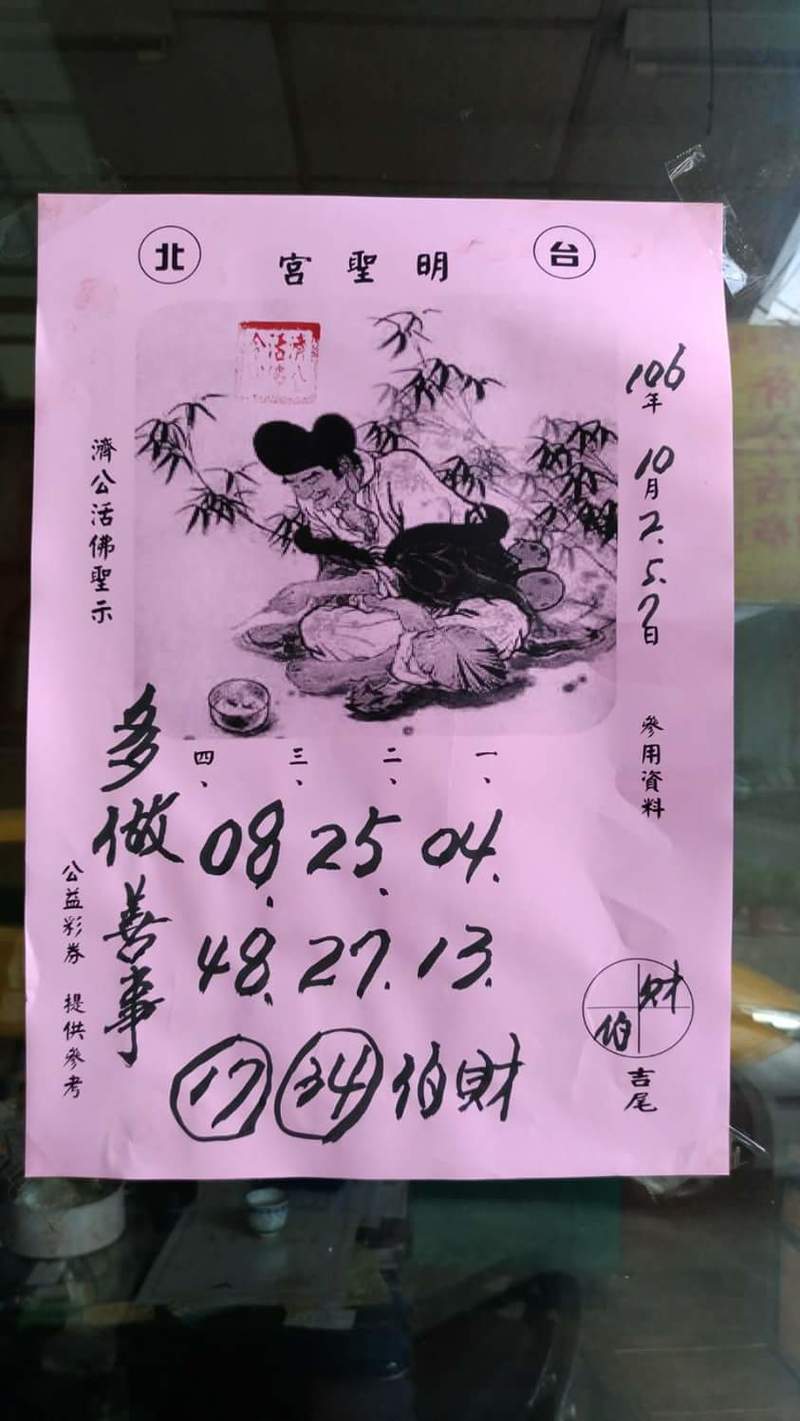 台北
明聖宮
濟公活佛
106年10月2.5.7日
參用資料
濟公活佛聖示
一、二、三、四、
04.25.08
13.27.48
財伯 34 17
多做善事
公益彩券 提供參考
財伯
吉尾